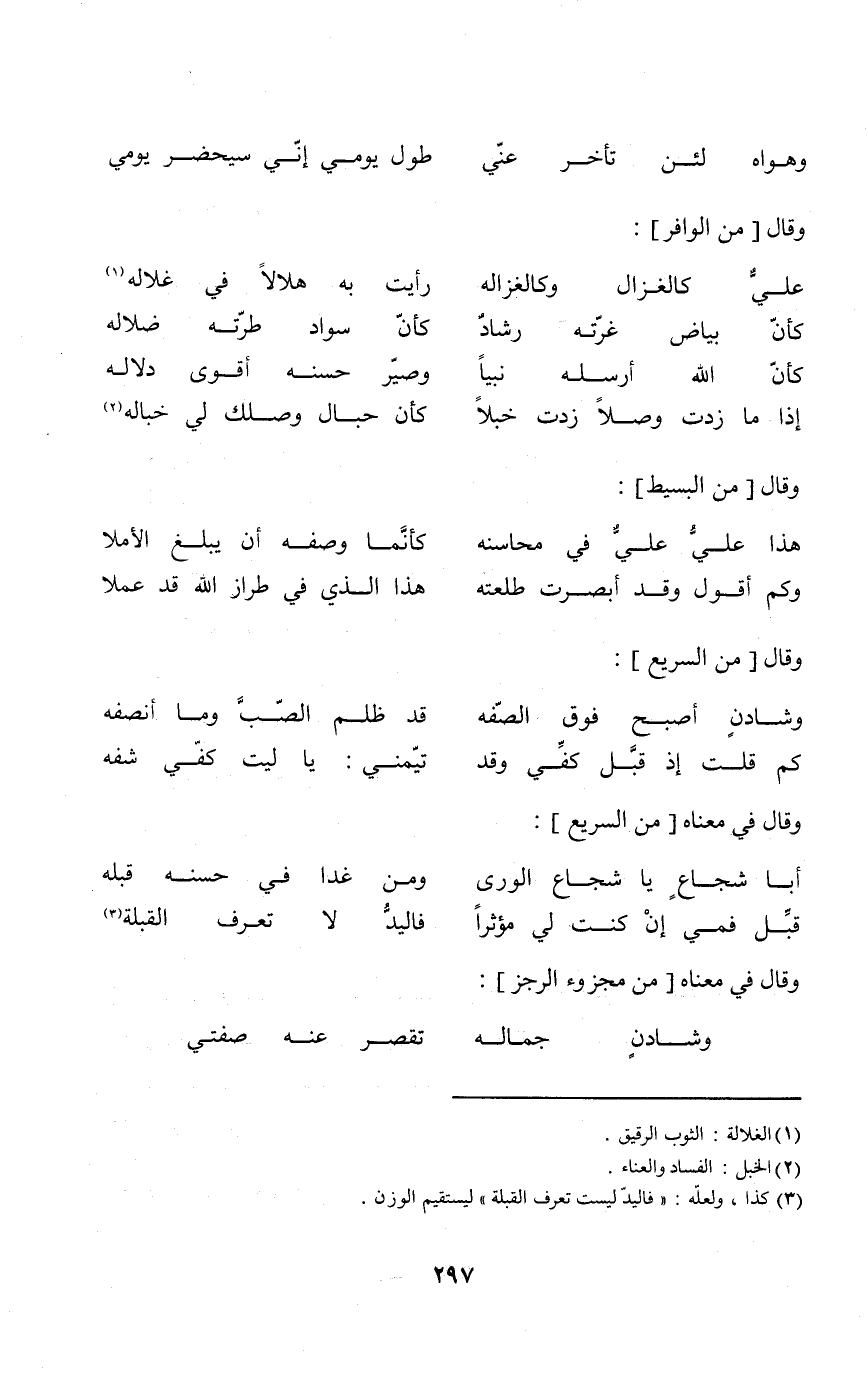 وهواه لئن تأخر عنّي طول يومي إنّي سيحضر يومي
وقال [ من الوافر ] :
عليٌّ كالغزال وكالغزاله رأيت به هلالاً في غلاله(١)
كأنّ بياض غرّته رشادٌ كأنّ سواد طرّته ضلاله
كأنّ الله أرسله نبياً وصيّر حسنه أقوى دلاله
إذا ما زدت وصلاً زدت خبلاً كأن حبال وصلك لي خباله(٢)
وقال [ من البسيط ] :
هذا عليٌّ عليٌّ في محاسنه كأنَّما وصفه أن يبلغ الأملا
وكم أقول وقد أبصرت طلعته هذا الذي في طراز الله قد عملا
وقال [ من السريع ] :
وشادنٍ أصبح فوق الصّفه قد ظلم الصّبَّ وما أنصفه
كم قلت إذ قبَّل كفِّي وقد تيّمني : يا ليت كفّي شفه
وقال في معناه [ من السريع ] :
أبا شجاعٍ يا شجاع الورى ومن غدا في حسنه قبله
قبِّل فمي إنْ كنت لي مؤثراً فاليدُّ لا تعرف القبلة(٣)
وقال في معناه [ من مجزوء الرجز ] :
وشادنٍ جماله تقصر عنه صفتي
(١) الغلالة : الثوب الرقيق .
(٢) الخبل : الفساد والعناء .
(٣) كذا ، ولعلّه : « فاليدّ ليست تعرف القبلة » ليستقيم الوزن .
٢٩٧